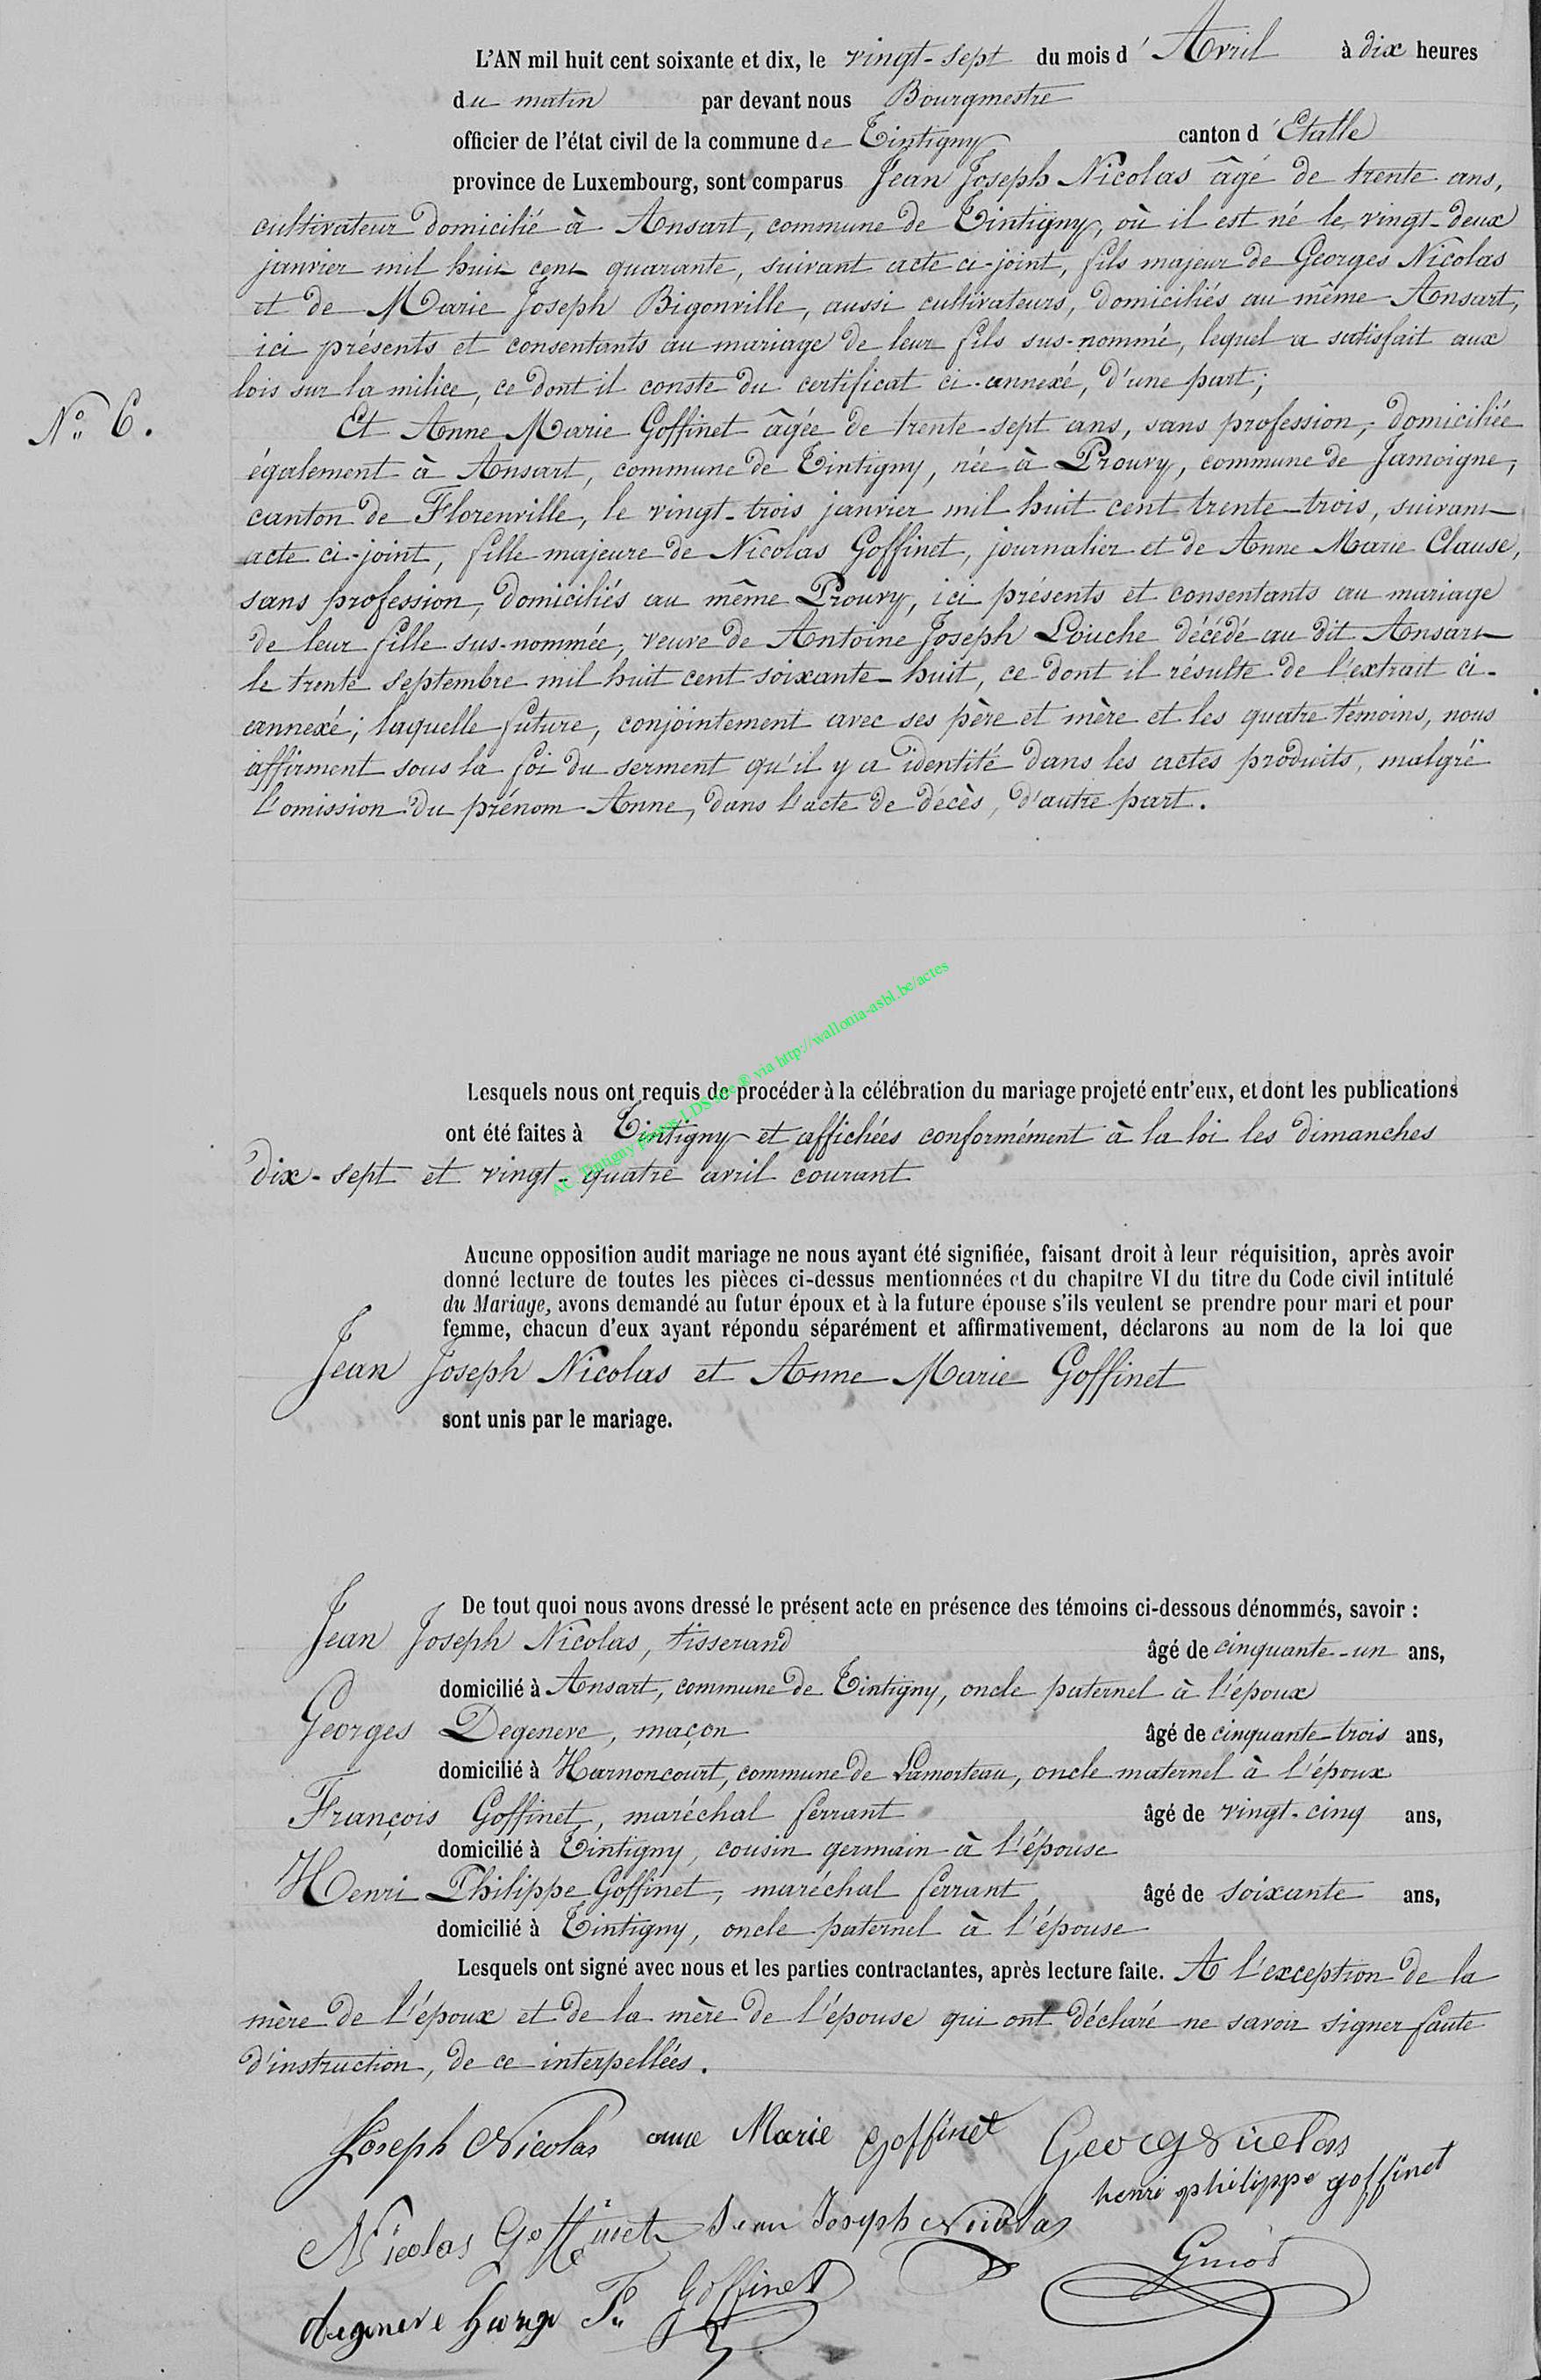 L'AN mil huit cent soixante et dix, le vingt-sept du mois d'Avril à dix heures
du matin par devant nous Bourgmestre
officier de l'état civil de la commune de Tintigny canton d'Etalle
province de Luxembourg, sont comparus Jean Joseph Nicolas âgé de trente ans,
cultivateur domicilié à Ansart, commune de Tintigny, où il est né le vingt-deux
janvier mil huit cent quarante, suivant acte ci-joint, fils majeur de Georges Nicolas
et de Marie Joseph Bigonville, aussi cultivateurs, domiciliés au même Ansart,
ici présents et consentants au mariage de leur fils sus-nommé, lequel a satisfait aux
lois sur la milice, ce dont il conste du certificat ci-annexé, d'une part;
N° 6.
Et Anne Marie Goffinet âgée de trente-sept ans, sans profession, domiciliée
également à Ansart, commune de Tintigny, née à Prouvy, commune de Jamoigne,
canton de Florenville, le vingt-trois janvier mil huit cent trente-trois, suivant
acte ci-joint, fille majeure de Nicolas Goffinet, journalier et de Anne Marie Clause,
sans profession, domiciliés au même Prouvy, ici présents et consentants au mariage
de leur fille sus-nommée, veuve de Antoine Joseph Louche décédé au dit Ansart
le trente septembre mil huit cent soixante-huit, ce dont il résulte de l'extrait ci-
annexé; laquelle future, conjointement avec ses père et mère et les quatre témoins, nous
affirment sous la foi du serment qu'il y a identité dans les actes produits, malgré
l'omission du prénom Anne, dans l'acte de décès, d'autre part.
Lesquels nous ont requis de procéder à la célébration du mariage projeté entr'eux, et dont les publications
ont été faites à Tintigny et affichées conformément à la loi les dimanches
dix-sept et vingt-quatre avril courant
Aucune opposition audit mariage ne nous ayant été signifiée, faisant droit à leur réquisition, après avoir
donné lecture de toutes les pièces ci-dessus mentionnées et du chapitre VI du titre du Code civil intitulé
du Mariage, avons demandé au futur époux et à la future épouse s'ils veulent se prendre pour mari et pour
femme, chacun d'eux ayant répondu séparément et affirmativement, déclarons au nom de la loi que
Jean Joseph Nicolas et Anne Marie Goffinet
sont unis par le mariage.
De tout quoi nous avons dressé le présent acte en présence des témoins ci-dessous dénommés, savoir :
Jean Joseph Nicolas, tisserand âgé de cinquante-un ans,
domicilié à Ansart, commune de Tintigny, oncle paternel à l'époux
Georges Degeneve, maçon âgé de cinquante-trois ans,
domicilié à Harnoncourt, commune de Lamorteau, oncle maternel à l'époux
François Goffinet, maréchal ferrant âgé de vingt-cinq ans,
domicilié à Tintigny, cousin germain à l'épouse
Henri Philippe Goffinet, maréchal ferrant âgé de soixante ans,
domicilié à Tintigny, oncle paternel à l'épouse
Lesquels ont signé avec nous et les parties contractantes, après lecture faite. A l'exception de la
mère de l'époux et de la mère de l'épouse qui ont déclaré ne savoir signer faute
d'instruction, de ce interpellées.
Joseph Nicolas anne Marie goffinet
henri philippe goffinet
Nicolas Goffinet Jean Joseph Nicolas
degeneve Fr Goffinet
via http://wallonia-asbl.be/actes